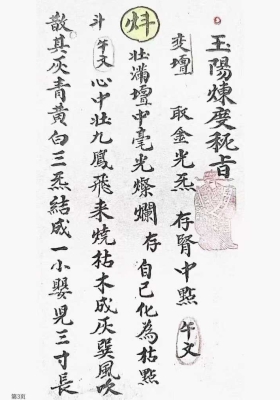 玉陽煉度秘旨
变壇 取金光炁 存腎中㸃 午文
炓 壮滿壇中毫光燦爛 存自己化為枯㸃
斗 午文 心中壮九鳳飛来燒枯木成灰巽風吹
散其灰青黄白三炁結成一小嬰児三寸長
第3頁